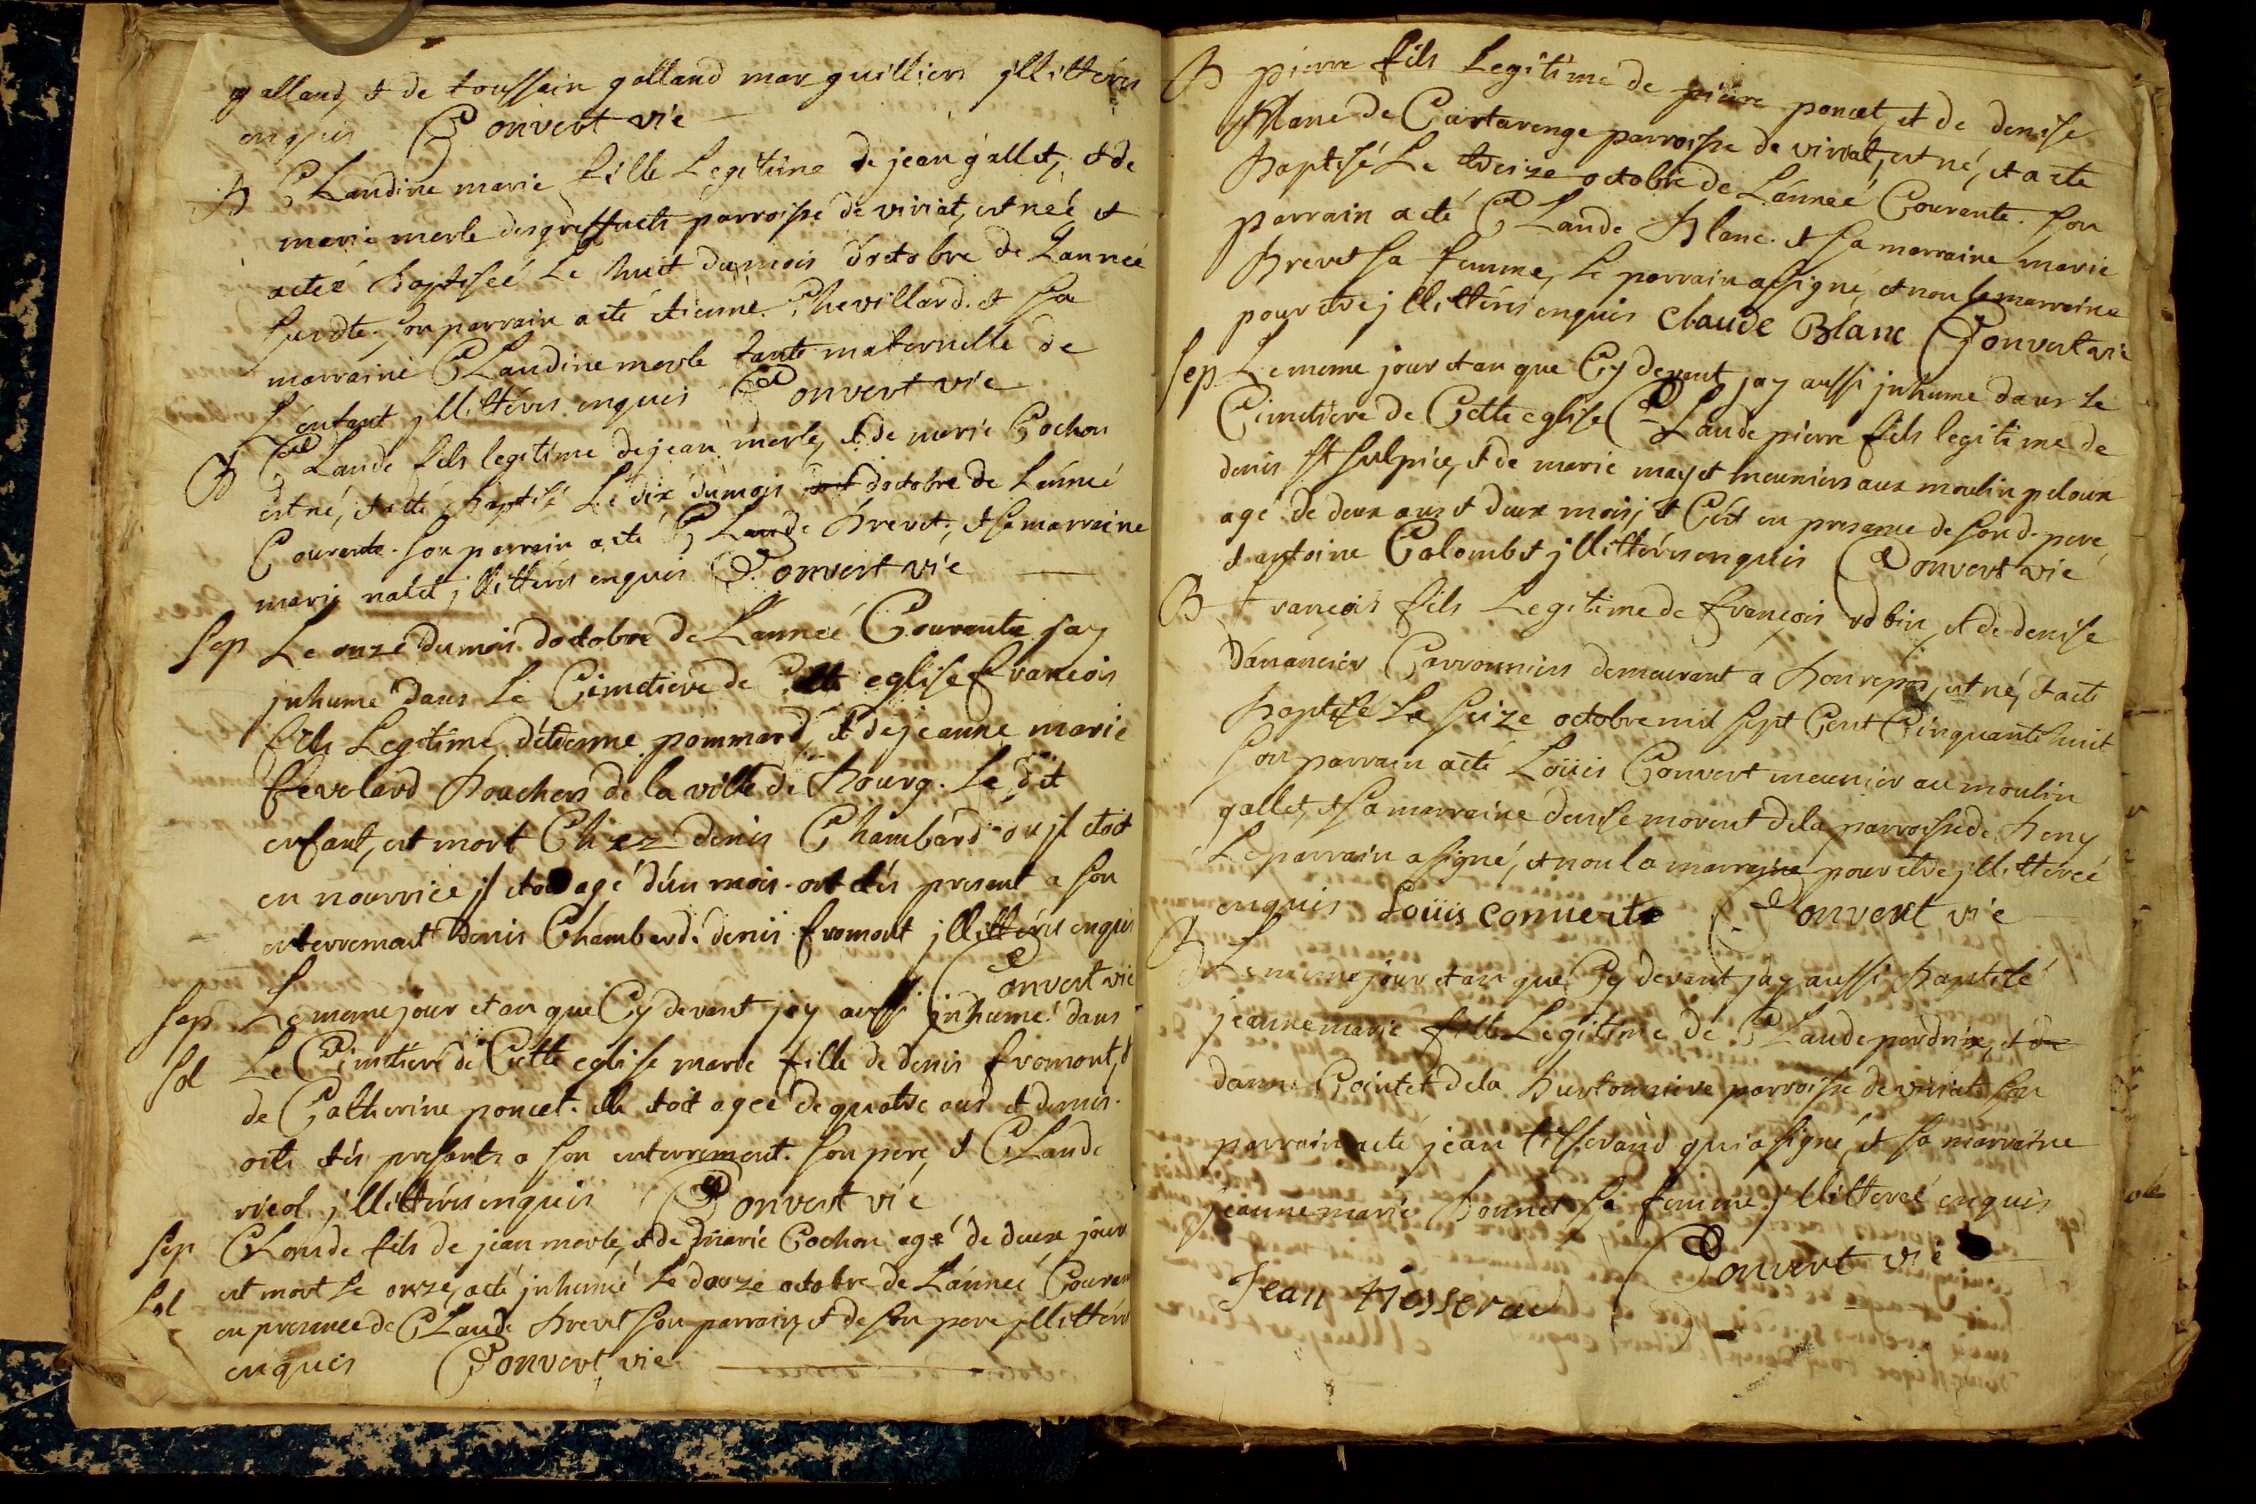 galland, et de toussain galland marguilliers jllitterés
enquis Convert vic
B Claudine marie fille Legitime de jean gallet, et de
marie merle des greffets parroisse de viriat, est neé et
acteé baptiseé Le huit du mois d'octobre de L'anneé
susdte. son parrain a eté etienne Chevillard. et sa
marraine Claudine merle tante maternelle de
L'enfant jllitterés enquis Convert vic
B Claude fils legitime de jean merle, et de marie Cochon
est né, et a eté baptisé Le dix du mois d'octobre de L'anneé
Courante. son parrain a eté Claude brevet, et sa marraine
marie nalet jllitterés enquis Convert vic
sep Le onze du mois d'octobre de L'anneé Courante j'ay
jnhumé dans Le Cimetiere de Cette eglise francois
fils Legitime d'etienne pommard, et de jeanne marie
fevelard bouchers de la ville de bourg. Le dit
enfant, est mort Chez denis Chambard ou jl etoit
en nourrice jl etoit agé d'un mois. ont etés present a son
enterrement denis Chambard. denis fromont jllitterés enquis
Convert vic
sep Le meme jour et an que Cy devant j'ay aussi jnhumé dans
sol Le Cimetiere de Cette eglise marie fille de denis fromont, et
de Catherine poncet. elle etoit ageé de quatre ans et demis.
ont etés presents a son enterrement. son pere, et Claude
riol jllitterés enquis Convert vic
sep Claude fils de jean merle, et de marie Cochon agé de deux jour
sol est mort Le onze, a eté jnhumé Le douze octobre de L'anneé Couran
en presence de Claude brevet son parrain, et de son pere jllitterés
enquis Convert vic
B pierre fils Legitime de pierre poncet, et de denise
blanc de Cartarenge parroisse de viriat, est né, et a eté
baptisé Le treize octobre de L'anneé Courante. son
parrain a eté Claude blanc. et sa marraine marie
brevet sa femme, Le parrain a signé, et non La marraine
pour etre jllitterés enquis claude Blanc Convert vic
sep Le meme jour et an que Cy devant j'ay aussi jnhumé dans Le
Cimetiere de Cette eglise Claude pierre fils legitime de
denis st sulpice, et de marie mayet meuniers aux moulin peloux
agé de deux ans et deux mois, et C'est en presence de sond. pere
et antoine Colombet jllitterés enquis Convert vic
B francois fils Legitime de francois robin, et de denise
Danancier Carronniers demeurant a bonrepos, est né, et a eté
baptisé Le seize octobre mil sept Cent Cinquante huit
son parrain a eté Loüis Convert meunier au moulin
gallet, et sa marraine denise morent de la parroisse de beny
Le parrain a signé, et non la marraine pour etre jllittereé
enquis Loüis conuert Convert vic
B Le meme jour et an que Cy devant j'ay aussi baptisé
jeanne marie fille Legitime de Claude perdrix, et de
danne Cointet de la burtonniere parroisse de viriat son
parrain a eté jean tisserand qui a signé, et sa marraine
jeanne marie bonnet sa femme jllittereé enquis
Convert vic
Jean tiesserand